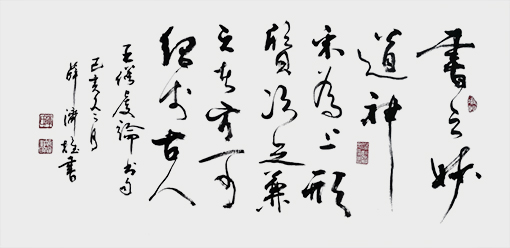 書之妙
道神
采為上形
質次之兼
之者方可
紹於古人
王僧虔論書句
己亥月
薛濟書